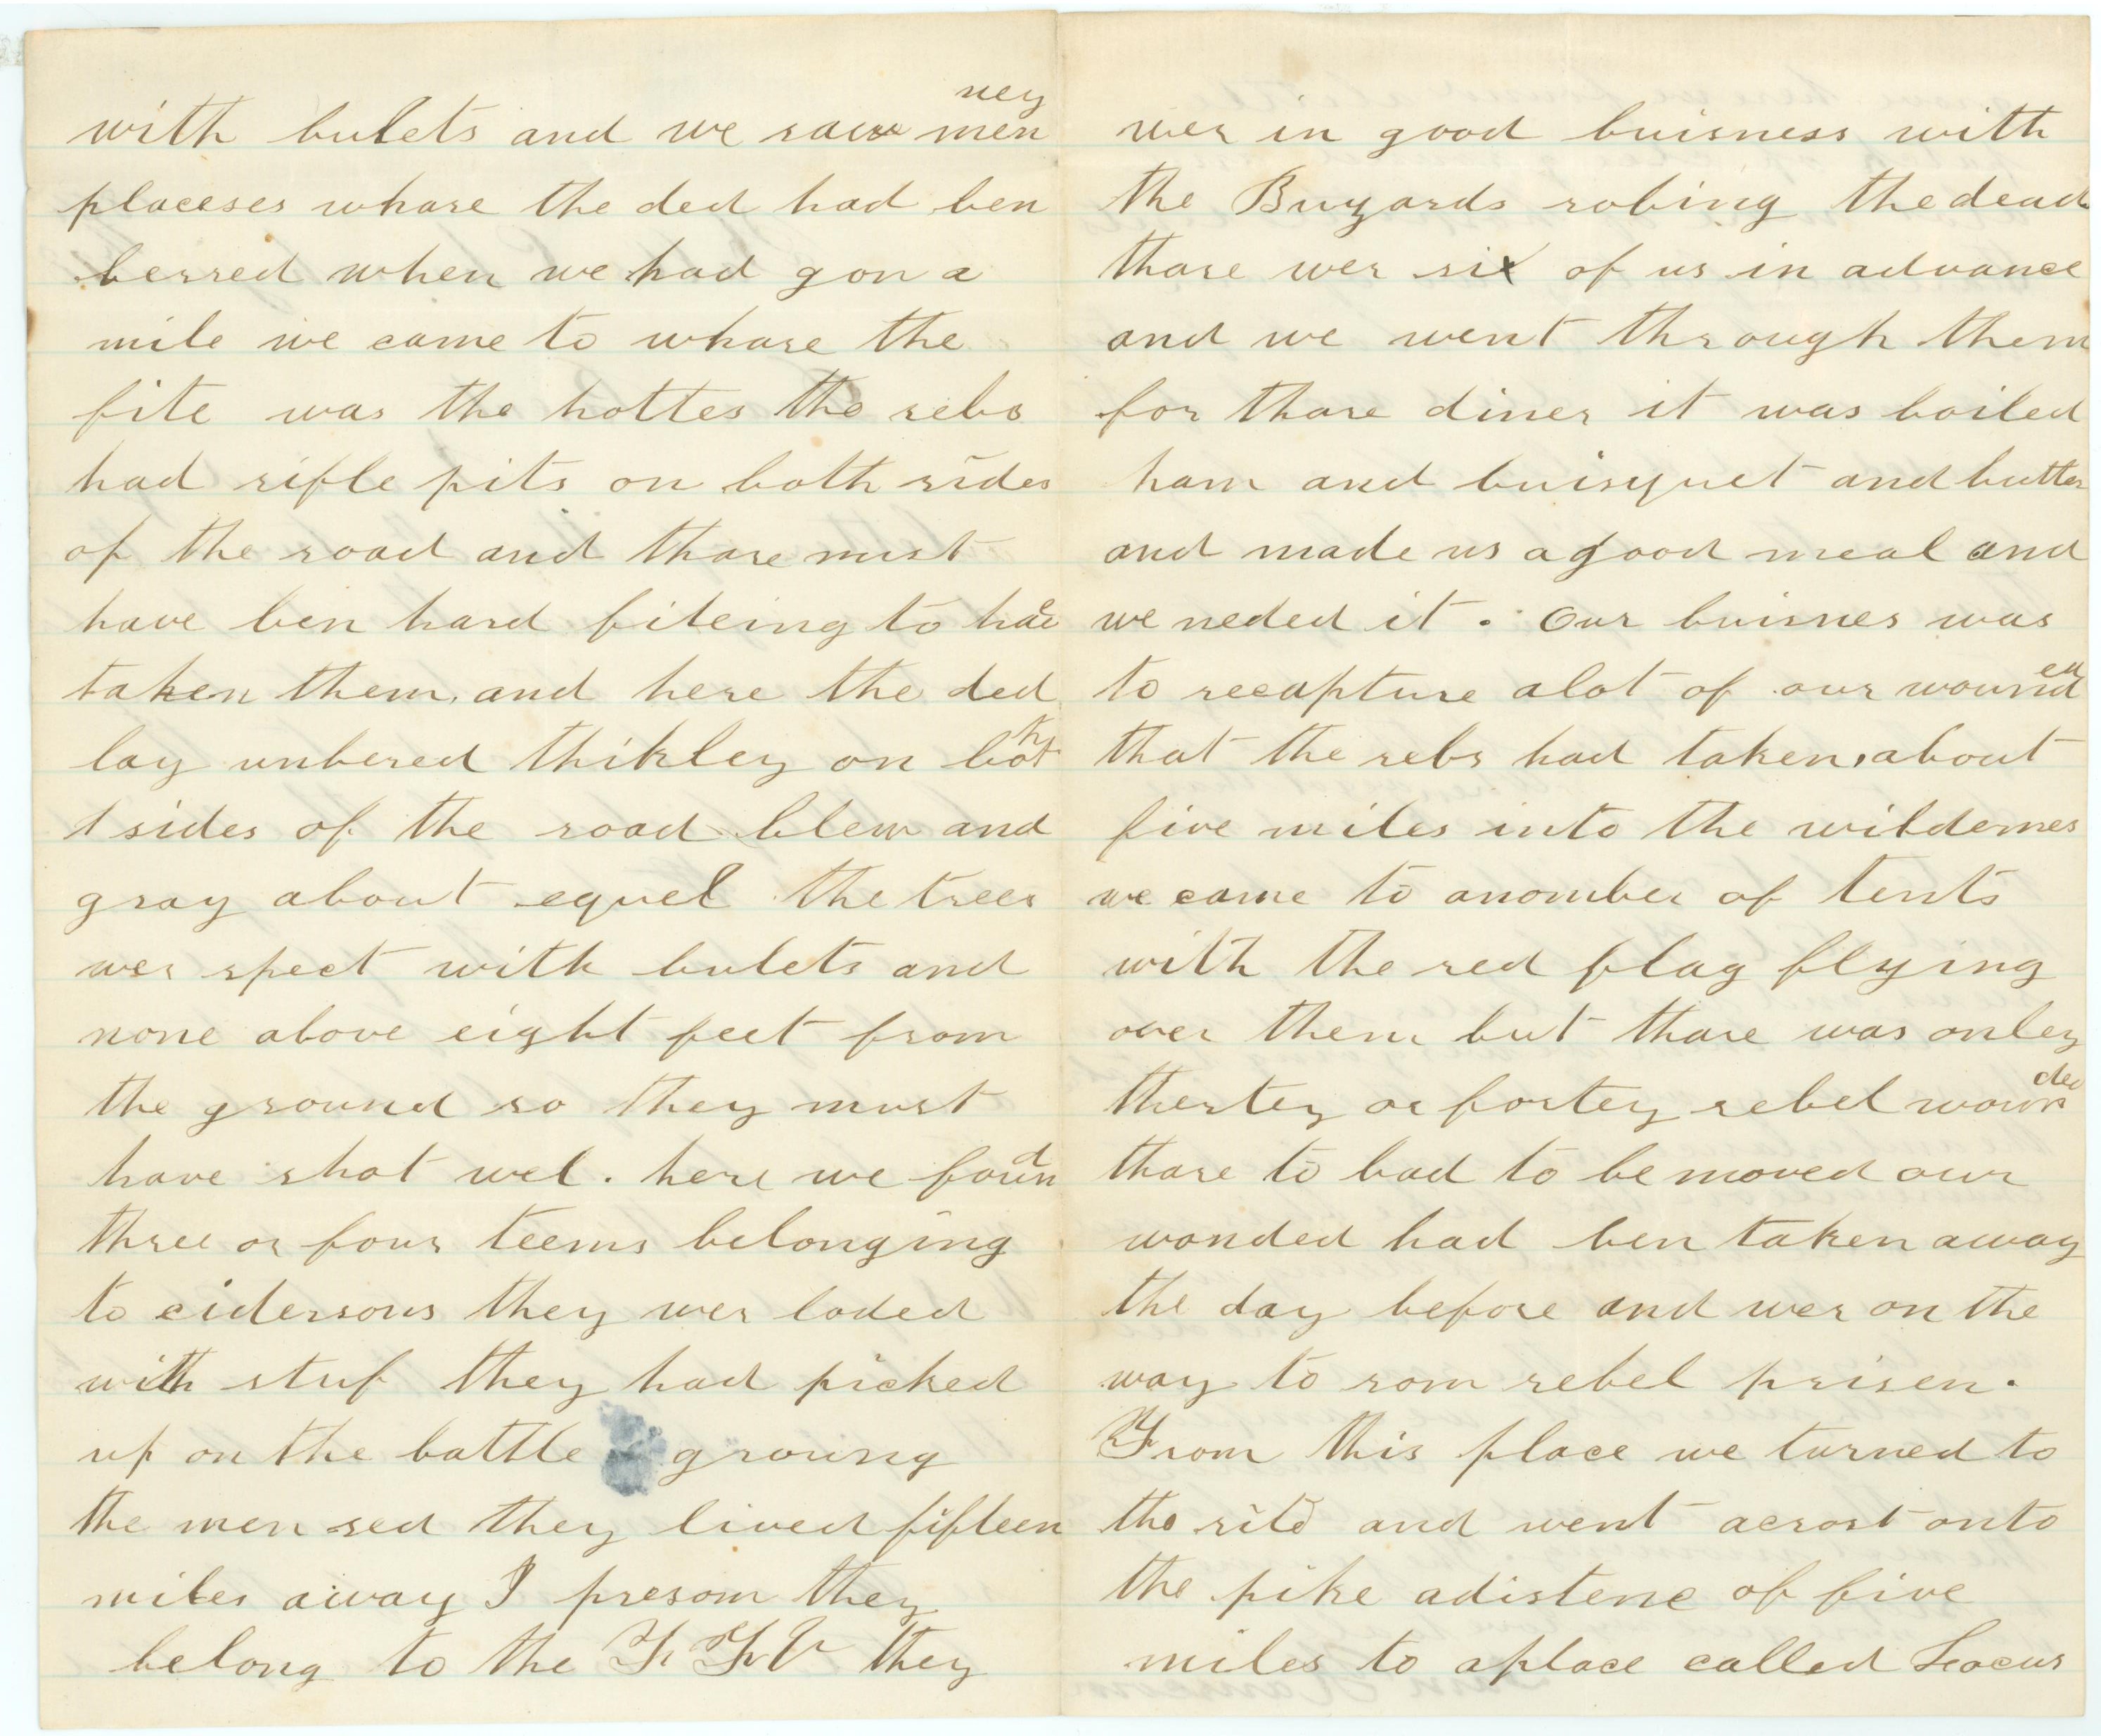 with bulets and we saw meney
placeses whare the ded had ben
berred when we had gon a
mile we came to whare the
fite was the hottes the rebs
had rifle pits on both sides
of the road and thare must
have ben hard fiteing to hae
taken them. and here the ded
lay unbered thikley on both
sides of the road blew and
gray about equel the trees
wer spect with bulets and
none above eight feet from
the ground so they must
have shot wel. here we found
three or four teems belonging
to cidersons they wer loded
with stuf they had picked
up on the battle groung
the men sed they lived fifteen
miles away I presom they
belong to the F. F. V they
wer in good buisness with
the Buzards robing the dead
thare wer six of us in advance
and we went through them
for thare diner it was boiled
ham and buisquet and butter
and made us a good meal and
we neded it. Our buisnes was
to recapture alot of our wounded
that the rebs had taken, about
five miles into the wildernes
we came to anomber of tents
with the red flag flying
over them but thare was onley
thertey or fortey rebel wounded
thare to bad to be moved our
wonded had ben taken away
the day before and wer on the
way to som rebel prisen.
From this place we turned to
the rite and went acrost onto
the pike adistenc of five
miles to aplace called Locus